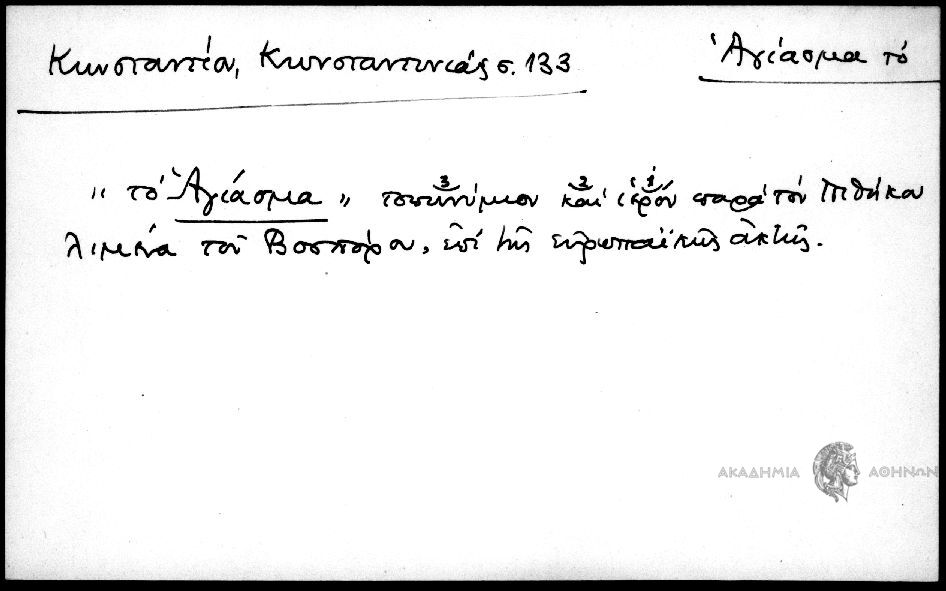 Κωνσταντίου, Κωνσταντινιάς σ. 133
Ἁγίασμα τό
" τό Ἁγίασμα " τοπωνύμιον καί ἱερόν παρά τόν Πιθήκου
3 2 1
λιμένα τοῦ Βοσπόρου, ἐπί τῆς εὐρωπαϊκῆς ἀκτῆς.
ΑΚΑΔΗΜΙΑ ΑΘΗΝΩΝ